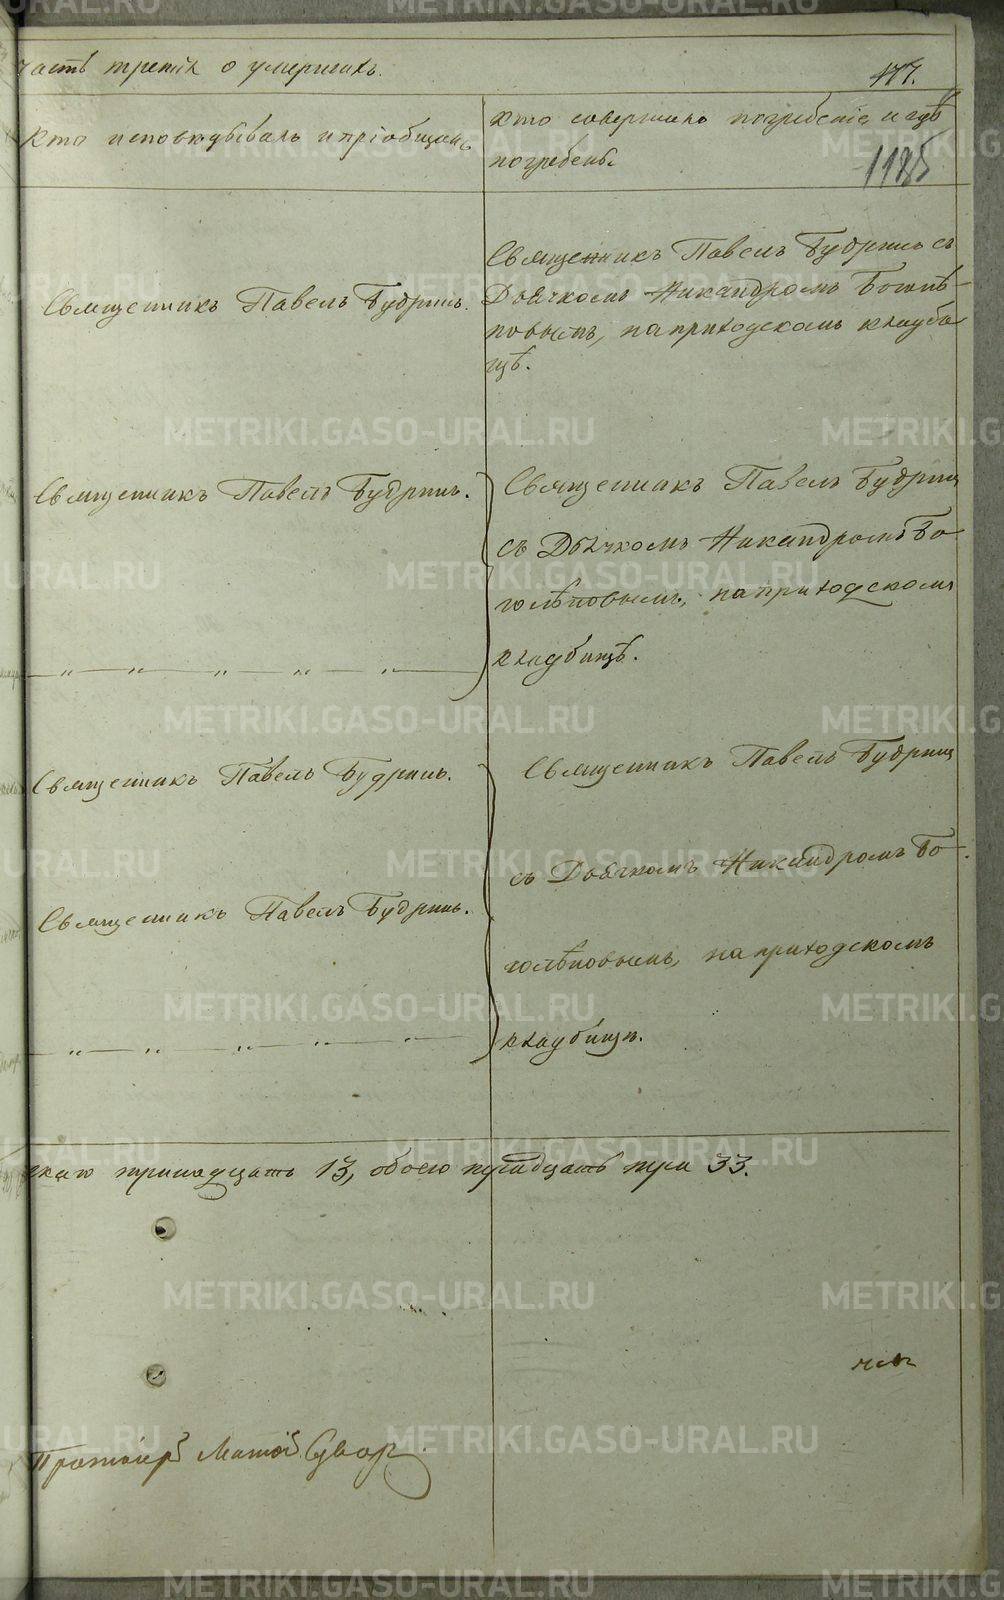 часть третія о умершихъ.
177.
Кто исповѣдывалъ и пріобщалъ.
Кто совершалъ погребеніе и гдѣ
погребены.
1185
Священникъ Павелъ Будринъ.
Священникъ Павелъ Будринъ съ
Дьячкомъ Никандромъ Боголѣ-
повымъ, на приходскомъ кладби
щѣ.
Священникъ Павелъ Будринъ.
Священникъ Павелъ Будринъ
съ Дьячкомъ Никандромъ Бо-
голѣповымъ, на приходскомъ
кладбищѣ.
Священникъ Павелъ Будринъ.
Священникъ Павелъ Будринъ
Священникъ Павелъ Будринъ.
съ Дьячкомъ Никандромъ Бо-
голѣповымъ, на приходскомъ
кладбищѣ.
скаго тринадцать 13, обоего тридцать три 33.
Протоіерей
METRIKI.GASO-URAL.RU